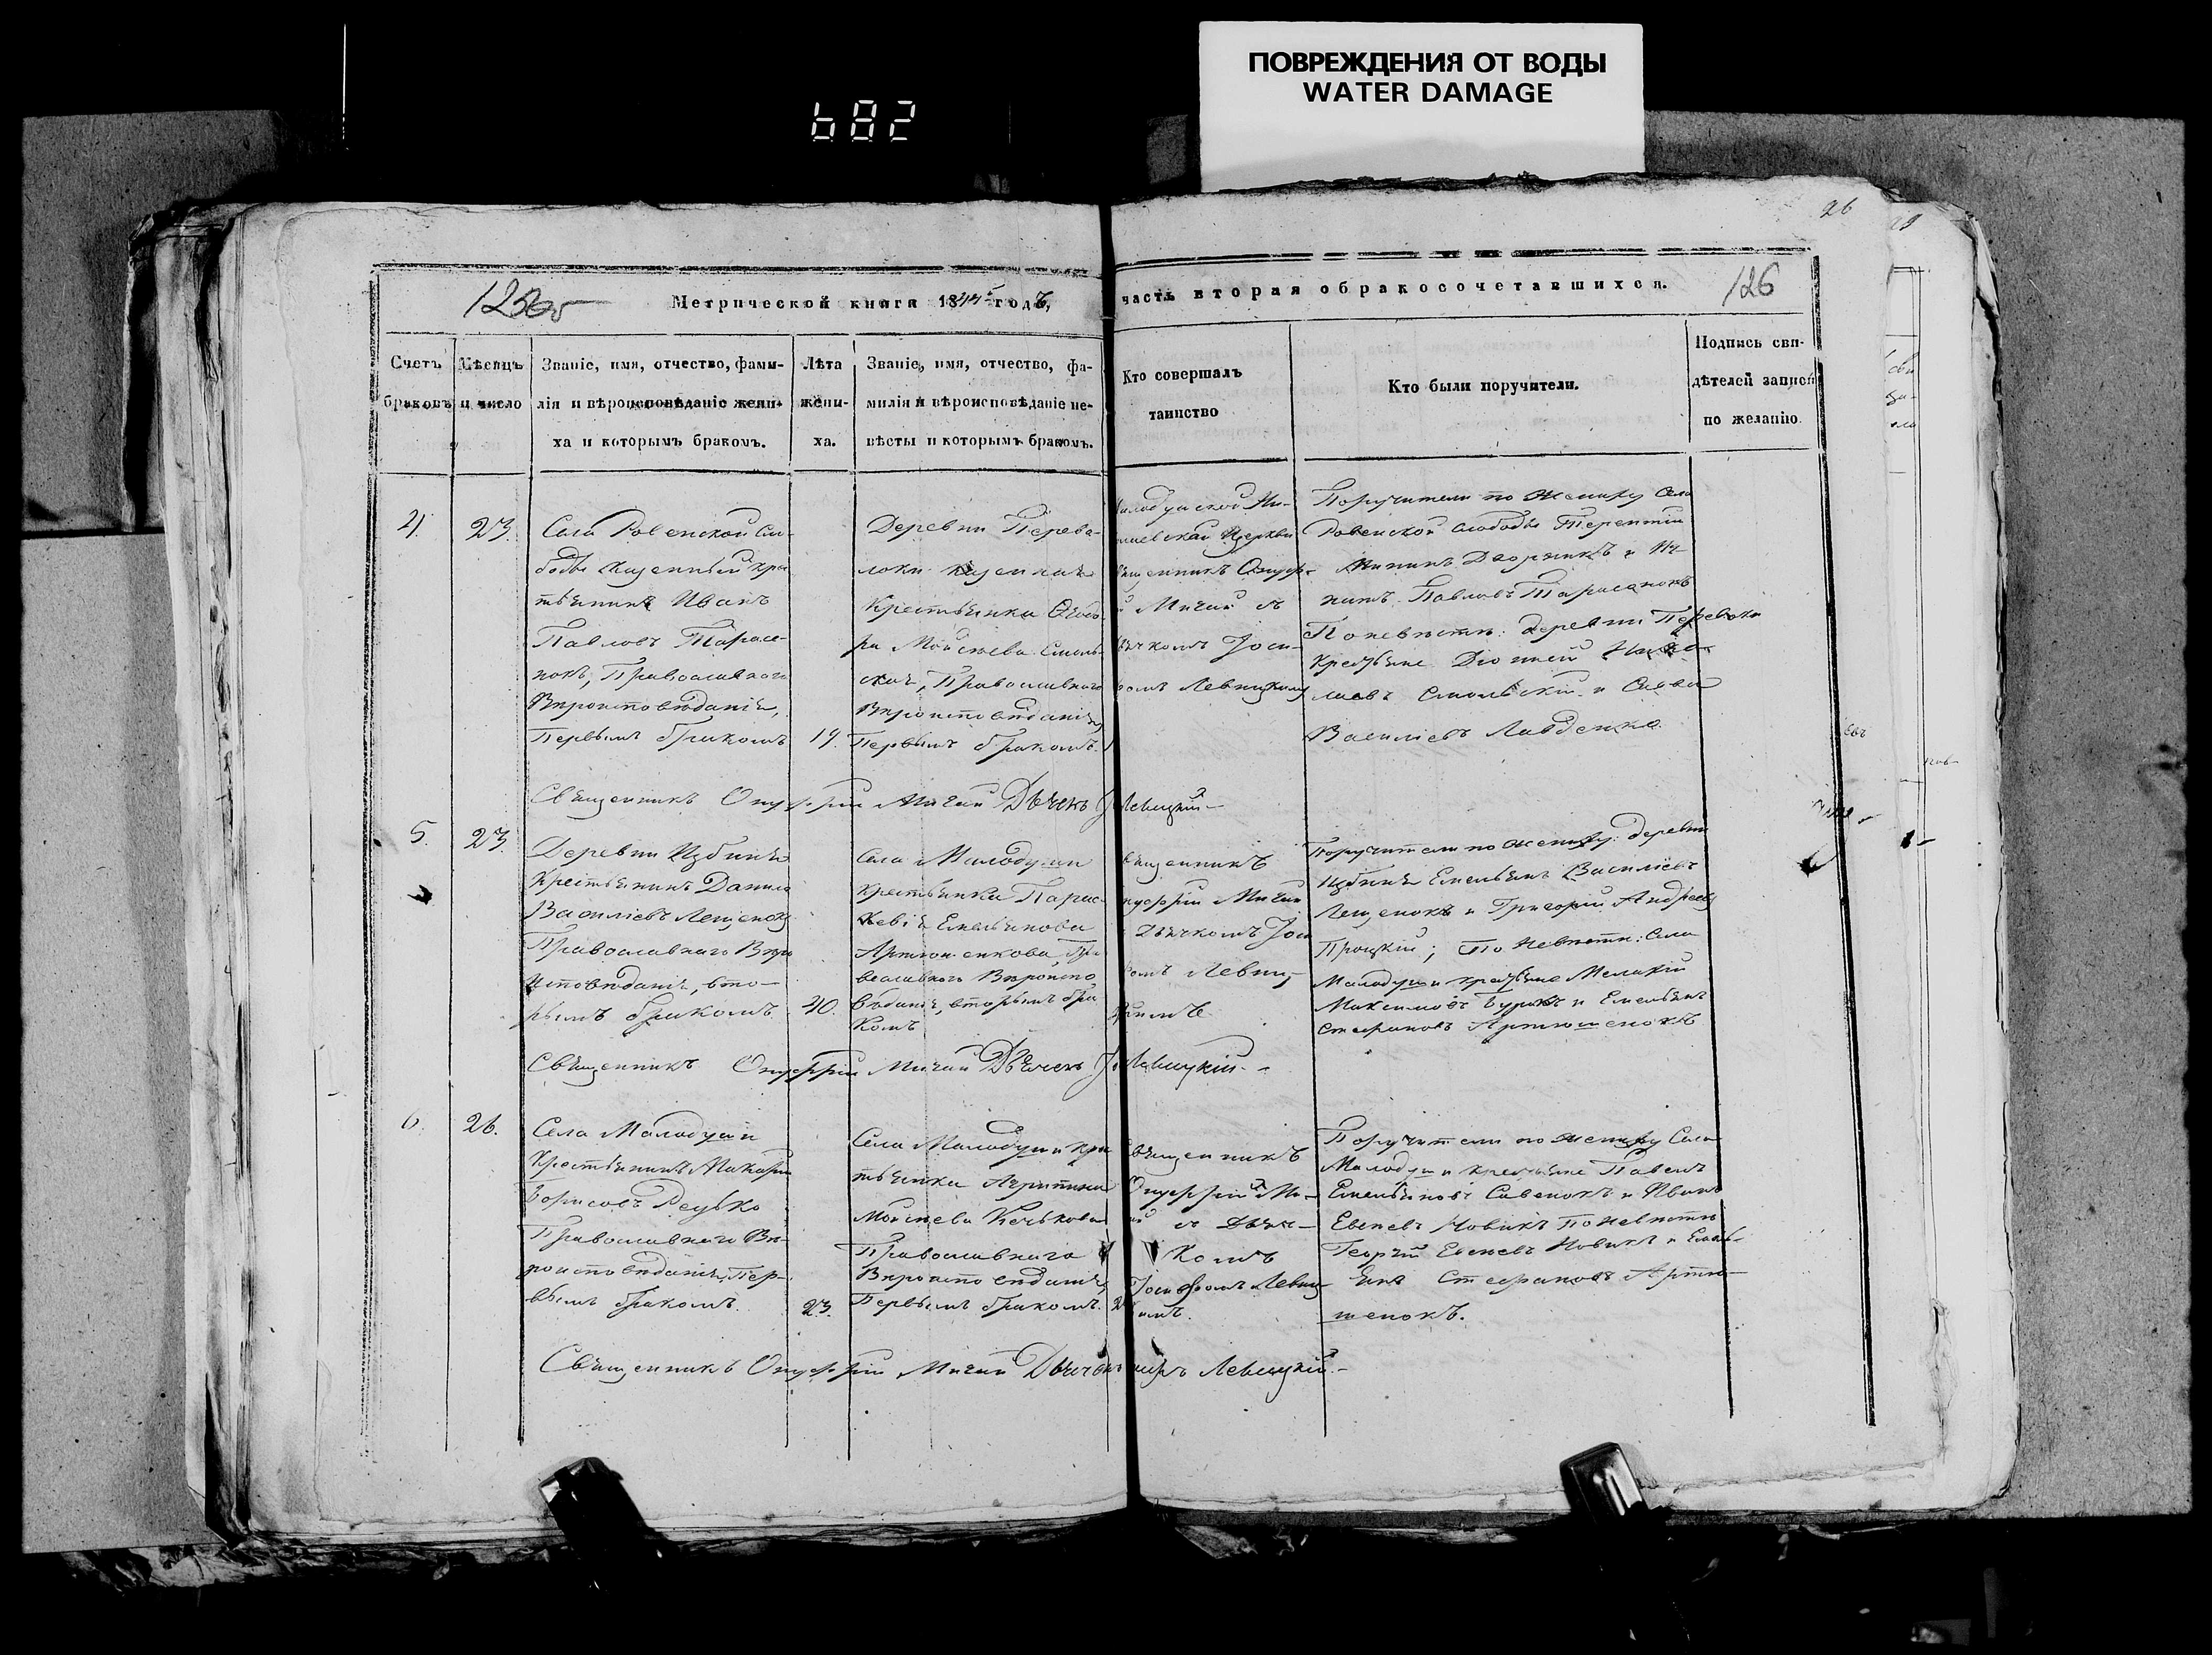 ПОВРЕЖДЕНИЯ ОТ ВОДЫ
WATER DAMAGE
682
26
126
Метрической книги 1844 годъ,
часть вторая о бракосочетавшихся.
Счетъ
браковъ
Мѣсяцъ
и число
Званіе, имя, отчество, фами-
лія и вѣроисповѣданіе жени-
ха и которымъ бракомъ.
Лѣта
жени-
ха.
Званіе, имя, отчество, фа-
милія и вѣроисповѣданіе не-
вѣсты и которымъ бракомъ.
Кто совершалъ
таинство
Кто были поручители.
Подпись сви-
дѣтелей записи
по желанію.
4.
23.
Села Ровенской Сло-
боды казенный кре
тьянинъ Иванъ
Павловъ Тарасе-
нокъ, Православнаго
Вѣроисповѣданія,
Первымъ бракомъ
19.
Деревни Перево-
локи казенная
Крестьянка Ѳеодо-
ра Моисеева Смоль-
ская, Православнаго
Вѣроисповѣданія
Первымъ бракомъ.
Малодушской Ни-
лаевской Церкви
вященникъ Онуф-
й Мигай съ
ьячкомъ Іоси-
фомъ Левицкимъ
Поручители по жениху Села
Ровенской слободы Терентій
Мининъ Дворникъ и
Павловъ Тарасенокъ
По невѣстѣ: деревни Переволоки
Крестьяне
Смольскій и Савва
Василіевъ Лавденко.
Священникъ Онуфрій Мигай Дьячекъ Левицкій
5.
23.
Деревни Избинъ
Крестьянинъ Данила
Василіевъ Лещенокъ
Православнаго Вѣро
исповѣданія, вто-
рымъ бракомъ.
40.
Села Малодуши
Крестьянка Парас-
кевія Емельянова
Артюшенкова, Пра
вославнаго Вѣроиспо
вѣданія, вторымъ бра
комъ
вященникъ
нуфрій Мигай
Дьячкомъ Іоси
фомъ Левиц-
кимъ
Поручители по жениху: деревни
Избинъ Емельянъ Василіевъ
Лещенокъ и Григорій Андреевъ
Процкій; По Невѣстѣ: Села
Малодуши крестьяне Мелахій
Максимовъ Буракъ и Емельянъ
Стефановъ Артюшенокъ
Священникъ Онуфрій Мигай Дьячекъ Левицкій.
6.
26.
Села Малодуши
Крестьянинъ Макарій
Борисовъ Редько
Православнаго Вѣ-
роисповѣданія, Пер-
вымъ бракомъ.
23.
Села Малодуши кре
тьянка Агрипина
Моисеева Кечькова
Православнаго
Вѣроисповѣданія,
Первымъ бракомъ.
Священникъ
Онуфрій Ми-
й съ Дьяч-
комъ
Іосифомъ Левиц-
кимъ.
Поручители по жениху Села
Малодуши крестьяне Павелъ
Емельяновъ Савенокъ и Иванъ
Евсеевъ Новикъ По невѣстѣ
Георгій Евсеевъ Новикъ и Емель-
янъ Стефановъ Артю-
шенокъ.
Священникъ Онуфрій Мигай Дьячекъ Левицкій.